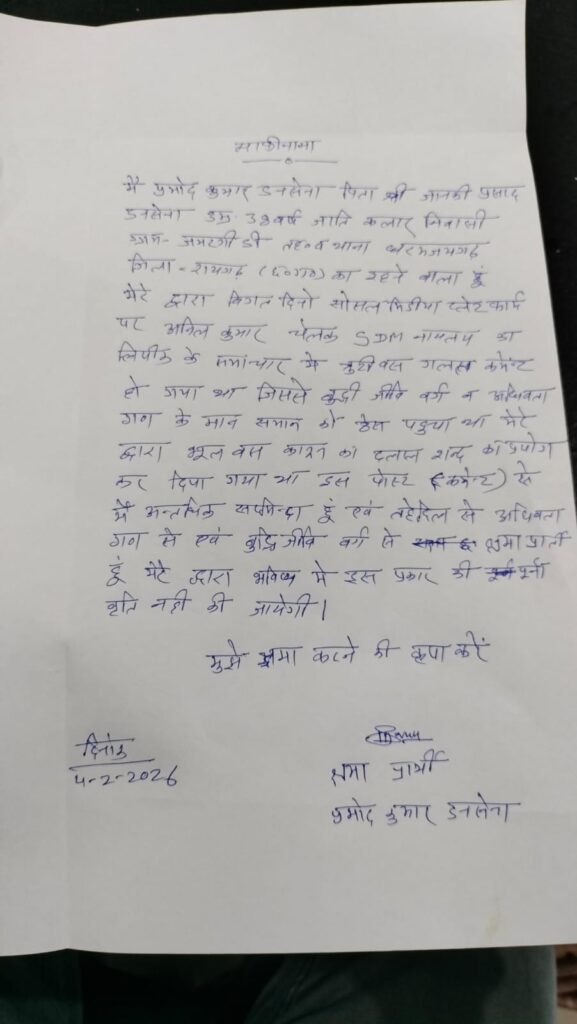 माफीनामा
मैं प्रमोद कुमार डनसेना पिता श्री जानकी प्रसाद
डनसेना उम्र 38 वर्ष जाति कलार निवासी
ग्राम- जमरगीडी तह० व थाना धरमजयगढ
जिला - रायगढ (छ०ग०) का रहने वाला हूं
मेरे द्वारा विगत दिनो सोसल मिडीया प्लेटफार्म
पर अनिल कुमार चेलक SDM का
लिपीक के समांचार मे त्रुटी वस गलत कमेन्ट
हो गया था जिससे बुद्धी जीवि वर्ग व अधिवक्ता
गण के मान सम्मान को ठेस पहुचा था मेरे
द्वारा भूल वस कारन का दलाल शब्द का प्रयोग
कर दिया गया था इस पोस्ट (कमेन्ट) से
मैं सरमिन्दा हूं एवं तहेदिल से अधिवक्ता
गण से एवं बुद्धि जीवि वर्ग से क्षमा प्रार्थी
हूं मेरे द्वारा भविष्य मे इस प्रकार की पूर्ना
वृति नही की जायेगी।
मुझे क्षमा करने की कृपा करें
दिनांक
4-2-2026
क्षमा प्रार्थी
प्रमोद कुमार डनसेना